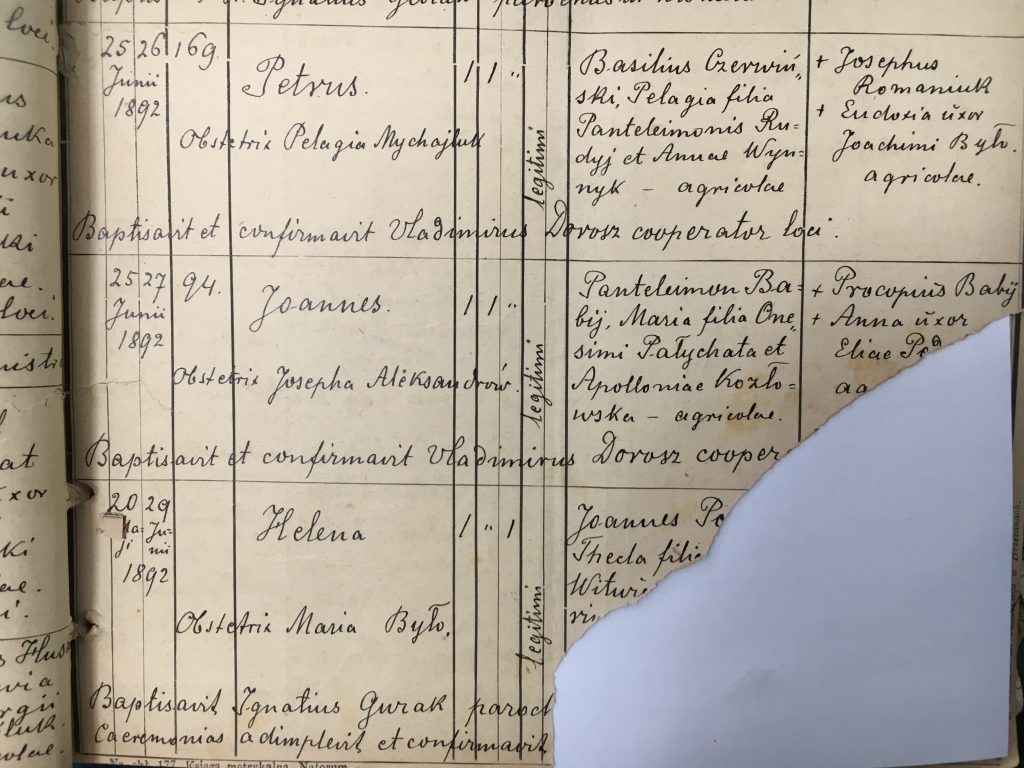 loci.
uxor
ski
loci.
25 26 169.
Junii
1892
Petrus.
1 1 "
legitimi
Basilius Czerwiń„
ski, Pelagia filia
Panteleimonis Ru=
dyj et Annae Wyn=
nyk - agricolae
+ Josephus
Romaniuk
+ Eudoxia uxor
Joachimi Było.
agricolae.
Obstetrix Pelagia Mychajluk
Baptisavit et confirmavit Vladimirus Dorosz cooperator loci.
25 27 94.
Junii
1892
Joannes.
1 1 "
legitimi
Panteleimon Ba=
bij, Maria filia One„
simi Pałychata et
Apolloniae Kozło=
wska - agricolae.
+ Procopius Babij
+ Anna uxor
Eliae
Obstetrix Josepha Aleksandrów.
Baptisavit et confirmavit Vladimirus Dorosz cooper
20 29
Ma= Ju=
ji nii
1892
Helena
1 " 1
legitimi
Joannes
Thecla filia
Obstetrix Maria Było,
Baptisavit Ignatius Gurak paroch
Caeremonias adimplevit et confirmavit
177. Księga metrykalna. Natorum